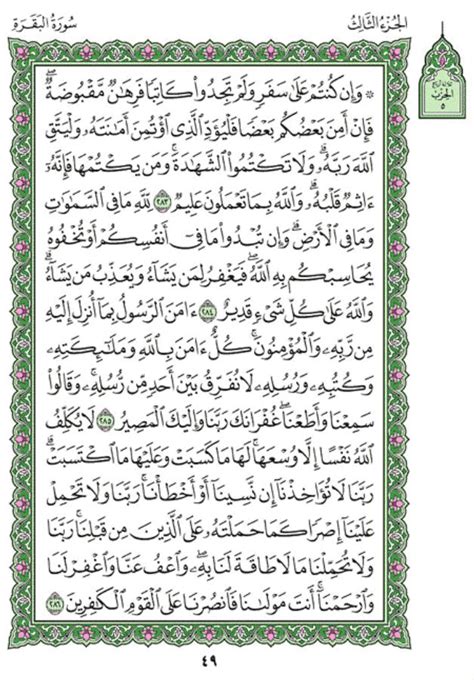 الجزء الثالث
سورة البقرة
الحزب
٥
۞ وَإِن كُنتُمْ عَلَىٰ سَفَرٍ وَلَمْ تَجِدُوا۟ كَاتِبًا فَرِهَٰنٌ مَّقْبُوضَةٌ ۖ
فَإِنْ أَمِنَ بَعْضُكُم بَعْضًا فَلْيُؤَدِّ ٱلَّذِى ٱؤْتُمِنَ أَمَٰنَتَهُۥ وَلْيَتَّقِ
ٱللَّهَ رَبَّهُۥ ۗ وَلَا تَكْتُمُوا۟ ٱلشَّهَٰدَةَ ۚ وَمَن يَكْتُمْهَا فَإِنَّهُۥٓ
ءَاثِمٌ قَلْبُهُۥ ۗ وَٱللَّهُ بِمَا تَعْمَلُونَ عَلِيمٌ ٢٨٣ لِّلَّهِ مَا فِى ٱلسَّمَٰوَٰتِ
وَمَا فِى ٱلْأَرْضِ ۗ وَإِن تُبْدُوا۟ مَا فِىٓ أَنفُسِكُمْ أَوْ تُخْفُوهُ
يُحَاسِبْكُم بِهِ ٱللَّهُ ۖ فَيَغْفِرُ لِمَن يَشَآءُ وَيُعَذِّبُ مَن يَشَآءُ ۗ
وَٱللَّهُ عَلَىٰ كُلِّ شَىْءٍ قَدِيرٌ ٢٨٤ ءَامَنَ ٱلرَّسُولُ بِمَآ أُنزِلَ إِلَيْهِ
مِن رَّبِّهِۦ وَٱلْمُؤْمِنُونَ ۚ كُلٌّ ءَامَنَ بِٱللَّهِ وَمَلَٰٓئِكَتِهِۦ
وَكُتُبِهِۦ وَرُسُلِهِۦ لَا نُفَرِّقُ بَيْنَ أَحَدٍ مِّن رُّسُلِهِۦ ۚ وَقَالُوا۟
سَمِعْنَا وَأَطَعْنَا ۖ غُفْرَانَكَ رَبَّنَا وَإِلَيْكَ ٱلْمَصِيرُ ٢٨٥ لَا يُكَلِّفُ
ٱللَّهُ نَفْسًا إِلَّا وُسْعَهَا ۚ لَهَا مَا كَسَبَتْ وَعَلَيْهَا مَا ٱكْتَسَبَتْ ۗ
رَبَّنَا لَا تُؤَاخِذْنَآ إِن نَّسِينَآ أَوْ أَخْطَأْنَا ۚ رَبَّنَا وَلَا تَحْمِلْ
عَلَيْنَآ إِصْرًا كَمَا حَمَلْتَهُۥ عَلَى ٱلَّذِينَ مِن قَبْلِنَا ۚ رَبَّنَا
وَلَا تُحَمِّلْنَا مَا لَا طَاقَةَ لَنَا بِهِۦ ۖ وَٱعْفُ عَنَّا وَٱغْفِرْ لَنَا
وَٱرْحَمْنَآ ۚ أَنتَ مَوْلَىٰنَا فَٱنصُرْنَا عَلَى ٱلْقَوْمِ ٱلْكَٰفِرِينَ ٢٨٦
٤٩